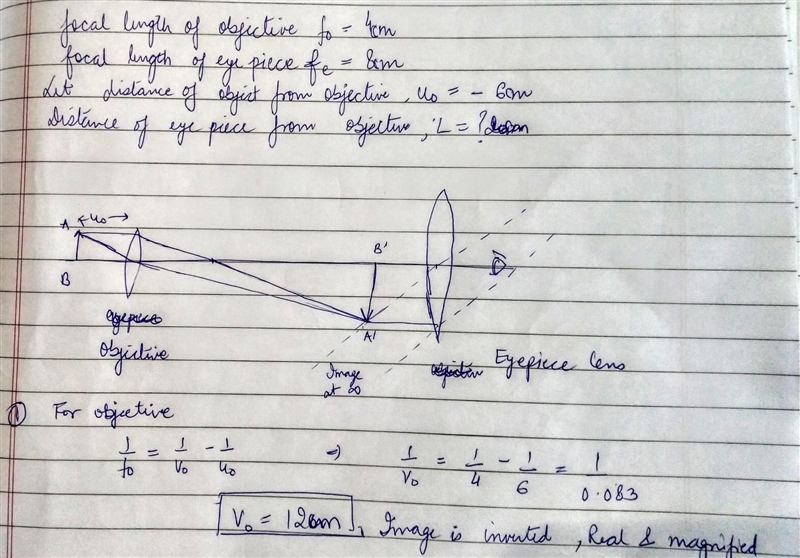 focal length of objective fo = 4cm
focal length of eye piece fe = 8cm
Let distance of object from objective, uo = - 6cm
Distance of eye piece from objective, L = ?
A ←uo→
B'
B
A'
eyepiece
Objective
Image
at ∞
objective Eyepiece lens
① For objective
1/fo = 1/vo - 1/uo ⇒ 1/vo = 1/4 - 1/6 = 1/0.083
Vo = 12cm, Image is inverted, Real & magnified